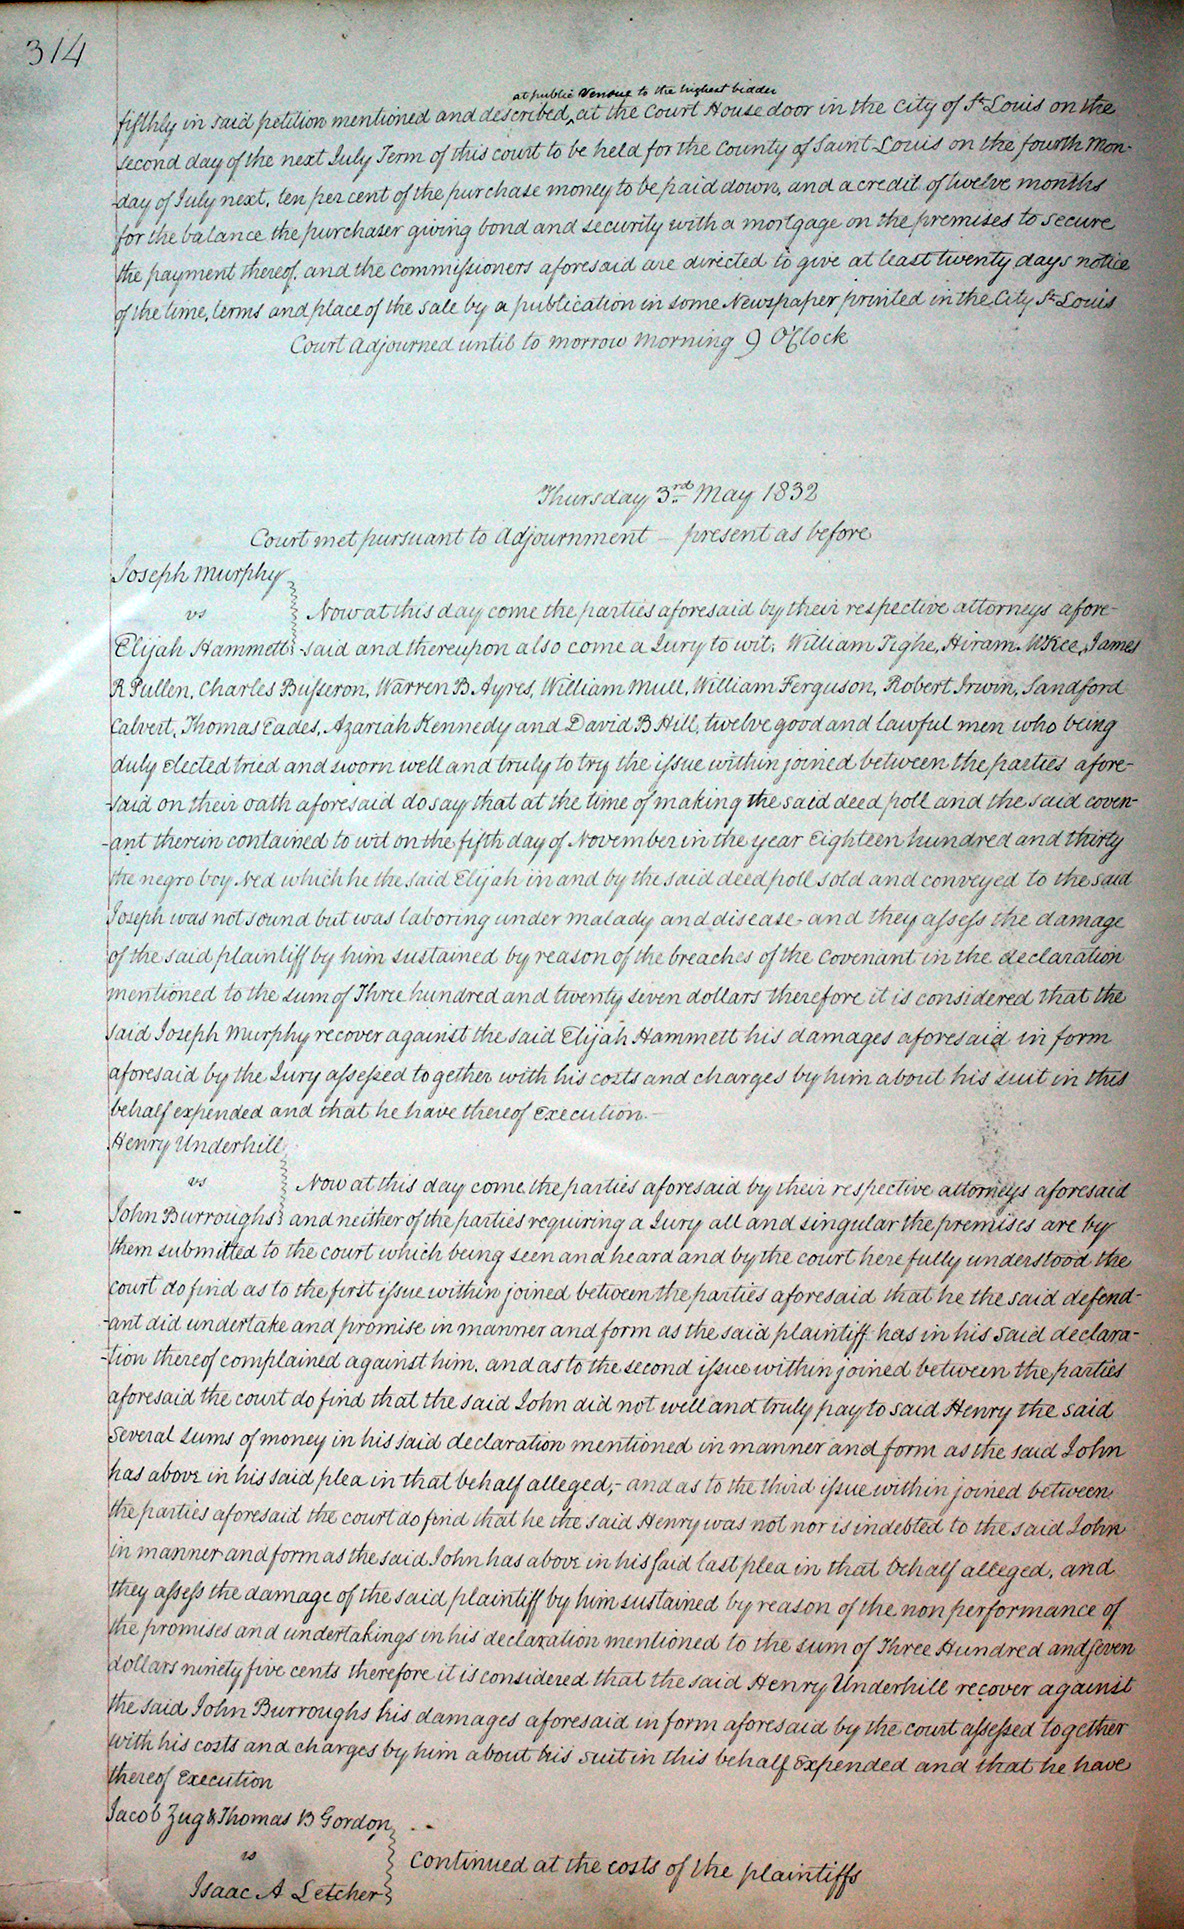 314
at public Vendue to the highest bidder
fifthly in said petition mentioned and described, at the Court House door in the City of St Louis on the
second day of the next July Term of this court to be held for the County of Saint Louis on the fourth Mon-
-day of July next, ten per cent of the purchase money to be paid down, and a credit of twelve months
for the balance the purchaser giving bond and security with a mortgage on the premises to secure
the payment thereof, and the commissioners aforesaid are directed to give at least twenty days notice
of the time, terms and place of the sale by a publication in some Newspaper printed in the City St Louis
Court adjourned until to morrow morning 9 O'Clock
Thursday 3rd May 1832
Court met pursuant to Adjournment - present as before
Joseph Murphy
vs
Now at this day come the parties aforesaid by their respective attorneys afore-
Elijah Hammett -said and thereupon also come a Jury to wit; William Tighe, Hiram McKee, James
R Pullen, Charles Busseron, Warren B Ayres, William Mull, William Ferguson, Robert Irwin, Sandford
Calvert, Thomas Eades, Azariah Kennedy and David B Hill, twelve good and lawful men who being
duly elected tried and sworn well and truly to try the issue within joined between the parties afore-
-said on their oath aforesaid do say that at the time of making the said deed poll and the said coven-
-ant therein contained to wit on the fifth day of November in the year Eighteen hundred and thirty
the negro boy Ned which he the said Elijah in and by the said deed poll sold and conveyed to the said
Joseph was not sound but was laboring under malady and disease - and they assess the damage
of the said plaintiff by him sustained by reason of the breaches of the covenant in the declaration
mentioned to the sum of Three hundred and twenty seven dollars therefore it is considered that the
said Joseph Murphy recover against the said Elijah Hammett his damages aforesaid in form
aforesaid by the Jury assessed together with his costs and charges by him about his suit in this
behalf expended and that he have thereof Execution -
Henry Underhill
vs
Now at this day come the parties aforesaid by their respective attorneys aforesaid
John Burroughs and neither of the parties requiring a Jury all and singular the premises are by
them submitted to the court which being seen and heard and by the court here fully understood the
court do find as to the first issue within joined between the parties aforesaid that he the said defend-
-ant did undertake and promise in manner and form as the said plaintiff has in his said declara-
-tion thereof complained against him, and as to the second issue within joined between the parties
aforesaid the court do find that the said John did not well and truly pay to said Henry the said
several sums of money in his said declaration mentioned in manner and form as the said John
has above in his said plea in that behalf alleged; - and as to the third issue within joined between
the parties aforesaid the court do find that he the said Henry was not nor is indebted to the said John
in manner and form as the said John has above in his said last plea in that behalf alleged, and
they assess the damage of the said plaintiff by him sustained by reason of the non performance of
the promises and undertakings in his declaration mentioned to the sum of Three Hundred and seven
dollars ninety five cents therefore it is considered that the said Henry Underhill recover against
the said John Burroughs his damages aforesaid in form aforesaid by the court assessed together
with his costs and charges by him about his suit in this behalf Expended and that he have
thereof Execution
Jacob Zug & Thomas B Gordon
vs
continued at the costs of the plaintiffs
Isaac A Letcher